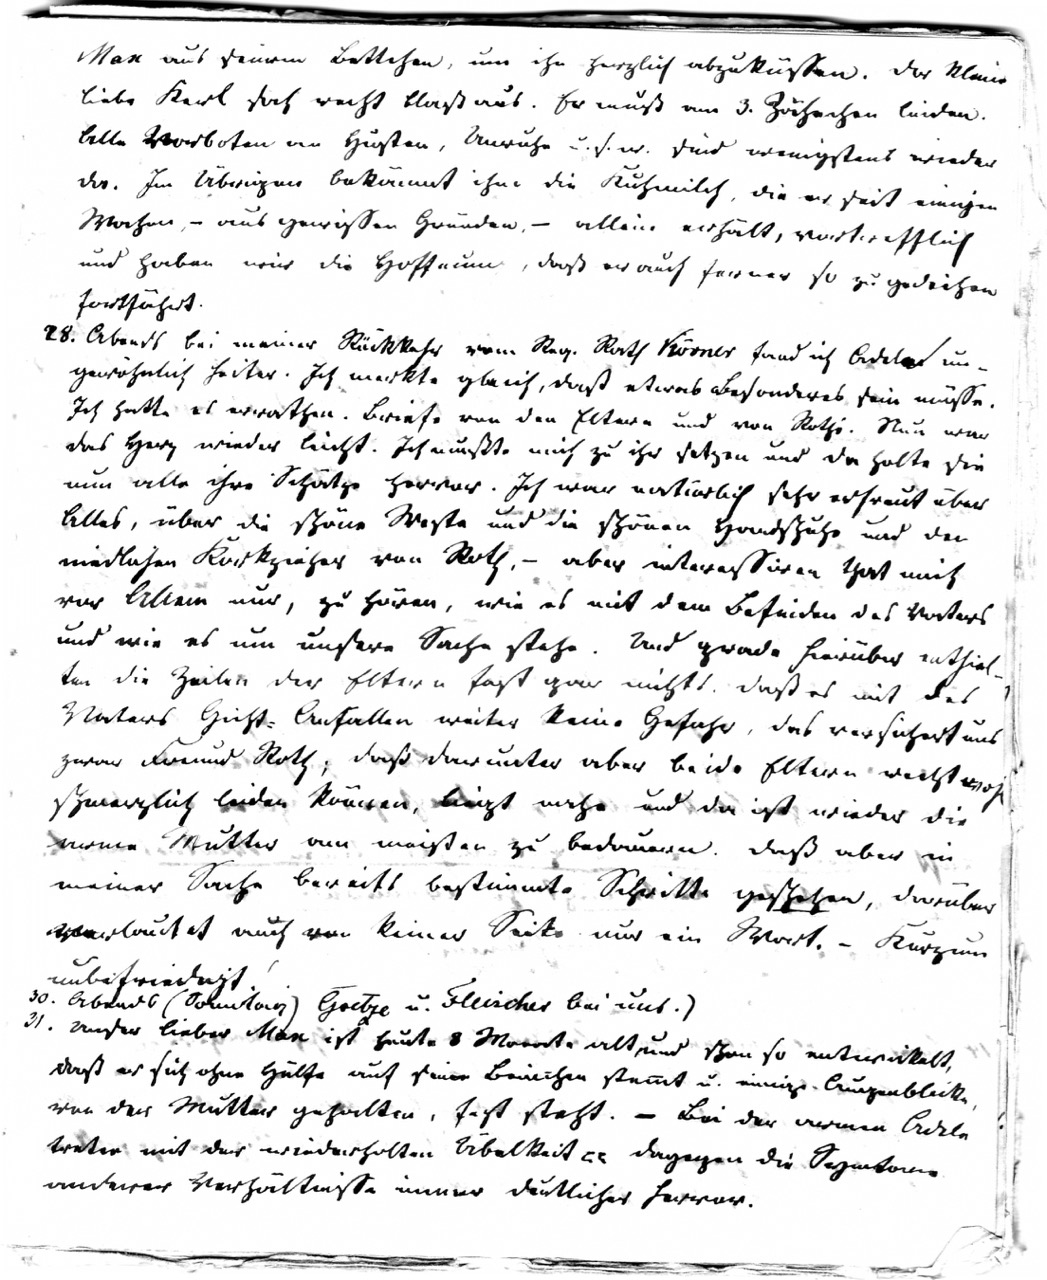 Max aus seinem Bettchen, um ihn herzlich abzuküssen. Der kleine
liebe Kerl sah recht blaß aus. Er muß am 3. Zähnchen leiden.
Alle Vorboten an Husten, Unruhe u.s.w. sind wenigstens wieder
da. Im Übrigen bekömmt ihm die Kuhmilch, die er seit einigen
Wochen, – aus gewissen Gründen, – allein erhält, vortrefflich
und haben wir die Hoffnung, daß er auch ferner so zu gedeihen
fortfährt.
28. Abends bei meiner Rückkehr vom Reg. Rath Körner fand ich Adele un-
gewöhnlich heiter. Ich merkte gleich, daß etwas Besonderes sein müsse.
Ich hatte es errathen. Briefe von den Eltern und von Roths. Nun war
das Herz wieder leicht. Ich mußte mich zu ihr setzen und da holte sie
nun alle ihre Schätze hervor. Ich war natürlich sehr erfreut über
Alles, über die schöne Weste und die schönen Handschuhe und den
niedlichen Korkzieher von Roth, – aber interessiren that mich
vor Allem nur, zu hören, wie es mit dem Befinden des Vaters
und wie es um unsere Sache stehe. Und grade hierüber enthiel-
ten die Zeilen der Eltern fast gar nichts. Daß es mit des
Vaters Gicht-Anfällen weiter keine Gefahr, das versichert uns
zwar Freund Roth; daß darunter aber beide Eltern recht
schmerzlich leiden können, liegt nahe und da ist wieder die
arme Mutter am meisten zu bedauern. Daß aber in
meiner Sache bereits bestimmte Schritte geschehen, darüber
verlautet auch von keiner Seite nur ein Wort. – Kurzum
unbefriedigt!
30. Abends (Sonntags) Goetze u. Fleischer bei uns.)
31. Unser lieber Max ist heute 8 Monate alt und schon so entwickelt,
daß er sich ohne Hülfe auf seine Beinchen stemt u. einige Augenblicke,
von der Mutter gehalten, fest steht. – Bei der armen Adele
treten mit der wiederholten Übelkeit dagegen die Symtome
anderer Verhältnisse immer deutlicher hervor.